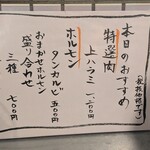 本日のおすすめ
(税抜価格です)
特選肉
上ハラミ 一、二〇〇
ホルモン
タンカルビ 五〇〇円
おまかせホルモン
盛り合わせ
三種 七〇〇円